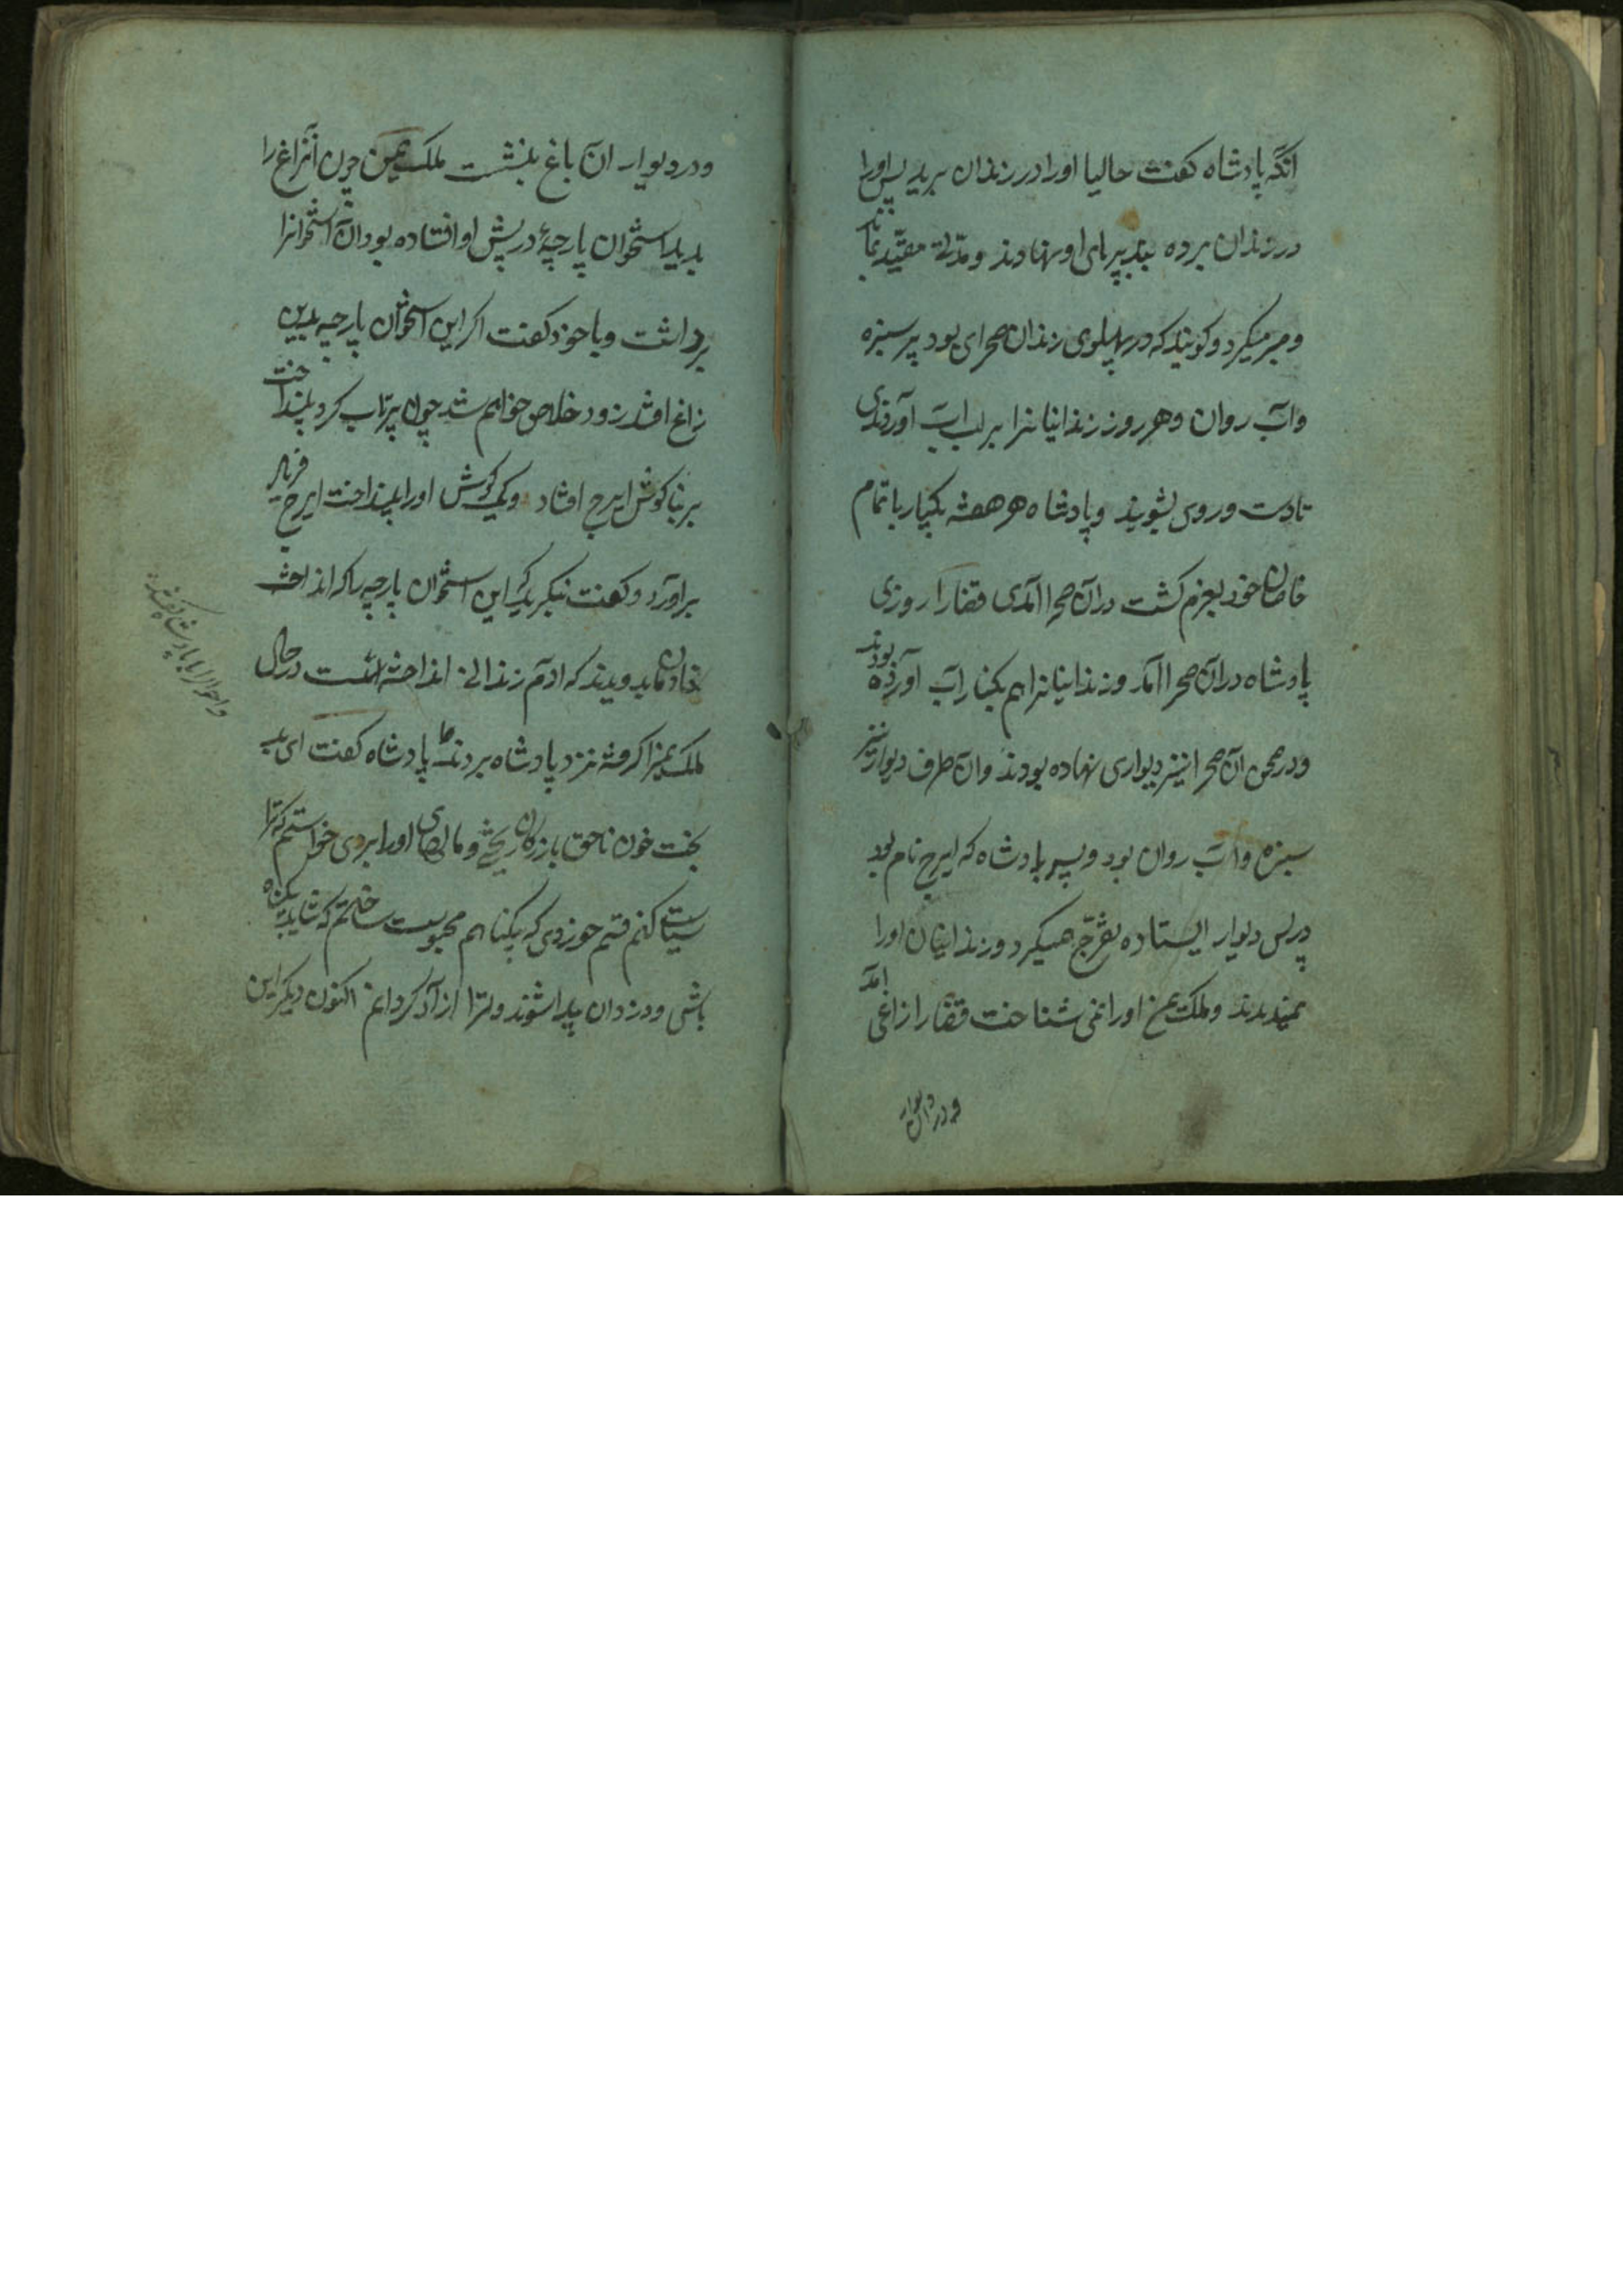 انگه پادشاه کفت حالیا اورا در زندان برید پس اورا
در زندان برده بند بر پای او نهادند و مدتی مقیّد بماند
و صبر میکرد و کویند که در پهلوی زندان صحرای بود پر سبزه
و اب روان و هر روز زندانیانرا بر لب اب آوردندی
تا دست و روی بشویند و پادشاه هر هفته یکبار با تمام
خاصان خود بعزم کشت دران صحرا آمدی قضارا روزی
پادشاه دران صحرا آمد و زندانیانرا هم بکنار اب آورده بودند
و در صحن آن صحرا نیز دیواری نهاده بودند و ان طرف دیوار نیز
سبزه و اب روان بود و پسر پادشاه که ایرج نام بود
در پس دیوار ایستاده تفرّج همیکرد و زندانیان اورا
نمیدیدند و ملک یمن اورا نمی شناخت قضارا زاغی امد
و در دیوار
و در دیوار ان باغ بنشست ملک یمن چون آنزاغ را
بدید استخوان پارچهٔ در پیش او افتاده بود ان استخوانرا
برداشت و با خود کفت اکر این استخوان پارچه بدین
زاغ افتد زود خلاص خواهم شد چون پرتاب کرد بینداخت
بر بناکوش ایرج افتاد و یک کوش اورا بینداخت ایرج فریاد
براورد و کفت بنکرید که این استخوان پارچه را که انداخت
خادمان بدویدند که ادم زندانی انداخته است در حال
ملک یمنرا کرفته نزد پادشاه بردند پادشاه کفت ای بد
بخت خون ناحق بازرکان ریختی و مالهای اورا بردی خواستم که ترا
سیاستی کنم قسم خوردی که بیکناهم محبوست ساختم که شاید بیکناه
باشی و دزدان پیدا شوند و ترا ازاد کردانم اکنون دیکر این